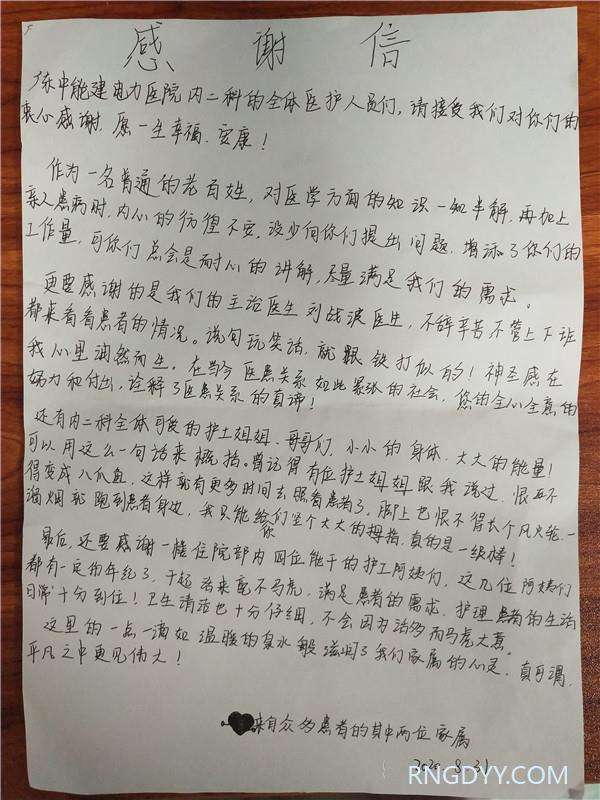 感谢信
广东中能建电力医院内二科的全体医护人员们,请接受我们对你们的
衷心感谢,愿一生幸福、安康!
作为一名普通的老百姓,对医学方面的知识一知半解,再加上
亲人患病时,内心的彷徨不安,没少向你们提出问题,增添了你们的
工作量,可你们总会是耐心的讲解,尽量满足我们的需求。
更要感谢的是我们的主治医生刘战波医生,不辞辛苦不管上下班
都来看看患者的情况。说句玩笑话,就跟铁打似的!神圣感在
我心里油然而生。在当今医患关系如此紧张的社会,您的全心全意的
努力和付出,诠释了医患关系的真谛!
还有内二科全体可爱的护士姐姐、哥哥们,小小的身体,大大的能量!
可以用这么一句话来概括。曾记得有位护士姐姐跟我说过,恨不
得变成八爪鱼,这样就有更多时间去照看患者了,脚上也恨不得长个风火轮,一
溜烟就跑到患者身边,我只能给你们竖个大大的拇指,真的是一级棒!
最后,还要感谢一楼住院部内四位能干的护工阿姨们,这几位阿姨们
都有一定的年纪了,干起活来毫不马虎,满足患者的需求,护理患者的生活
日常十分到位!卫生清洁也十分仔细,不会因为活多而马虎大意。
这里的一点一滴如温暖的泉水般滋润了我们家属的心灵,真可谓,
平凡之中更见伟大!
来自众多患者的其中两位家属
2020.8.31
RNGDYY.COM